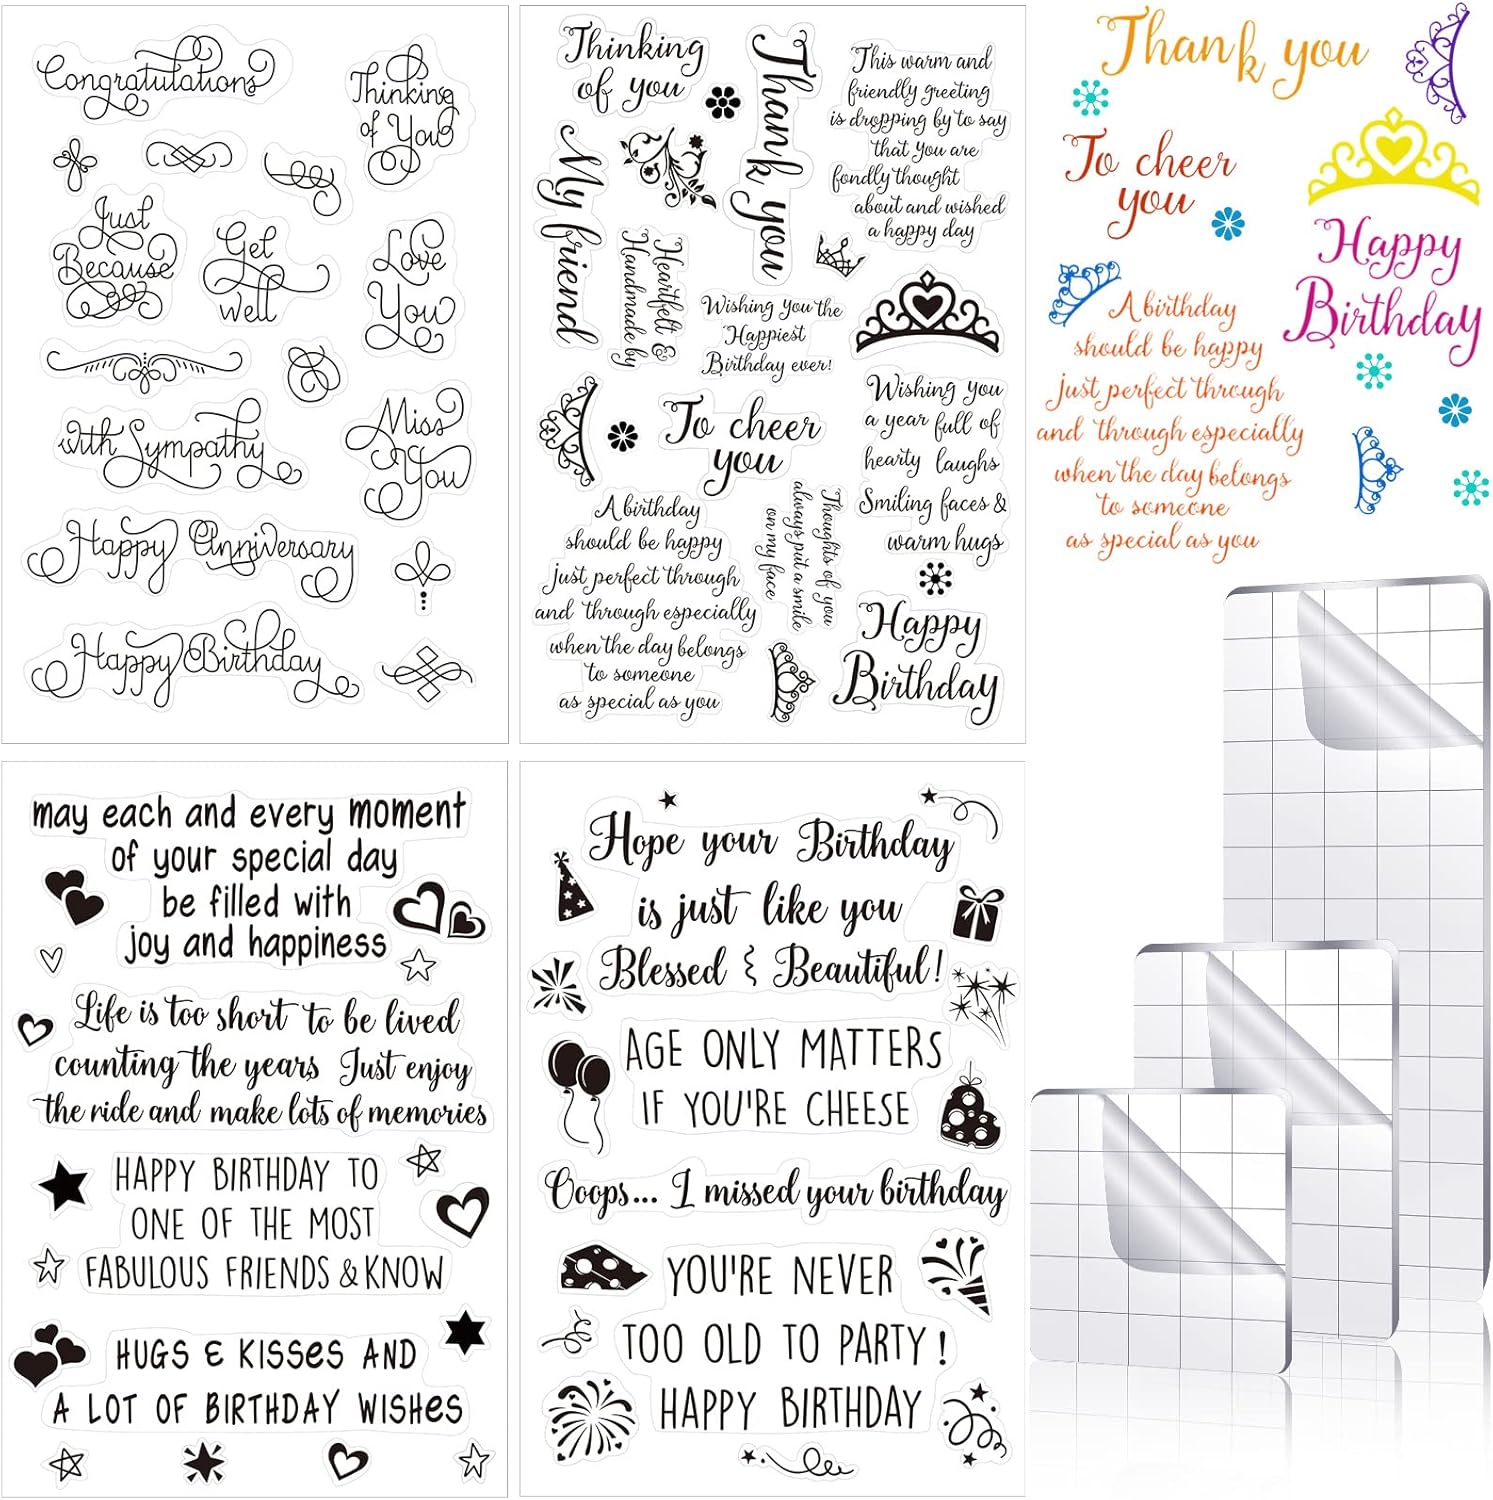 Congratulations
Thinking
of You
Just
Because
Get
well
Love
You
with Sympathy
Miss
You
Happy Anniversary
Happy Birthday
Thinking
of you
My friend
Thank you
This warm and
friendly greeting
is dropping by to say
that you are
fondly thought
about and wished
a happy day
Heartfelt &
Handmade by
Wishing you the
Happiest
Birthday ever!
To cheer
you
Wishing you
a year full of
hearty laughs
Smiling faces &
warm hugs
A birthday
should be happy
just perfect through
and through especially
when the day belongs
to someone
as special as you
Thoughts of you
always put a smile
on my face
Happy
Birthday
Thank you
To cheer
you
Happy
Birthday
A birthday
should be happy
just perfect through
and through especially
when the day belongs
to someone
as special as you
may each and every moment
of your special day
be filled with
joy and happiness
Life is too short to be lived
counting the years Just enjoy
the ride and make lots of memories
HAPPY BIRTHDAY TO
ONE OF THE MOST
FABULOUS FRIENDS & KNOW
HUGS & KISSES AND
A LOT OF BIRTHDAY WISHES
Hope your Birthday
is just like you
Blessed & Beautiful!
AGE ONLY MATTERS
IF YOU'RE CHEESE
Ooops... I missed your birthday
YOU'RE NEVER
TOO OLD TO PARTY!
HAPPY BIRTHDAY